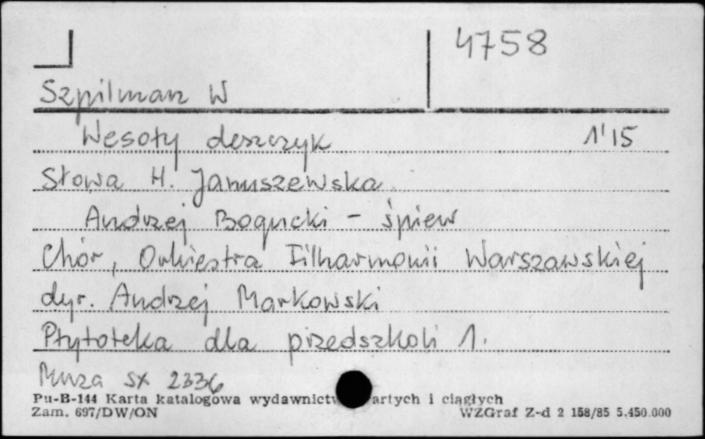 4758
Szpilman W
Wesoły deszczyk 1'15
Słowa H. Januszewska
Andrzej Bogucki - śpiew
Chór, Orkiestra Filharmonii Warszawskiej
dyr. Andrzej Markowski
Płytoteka dla przedszkoli 1.
Muza sx 2336
Pu-B-144 Karta katalogowa wydawnictw artych i ciągłych
Zam. 697/DW/ON WZGraf Z-d 2 158/85 5.450.000